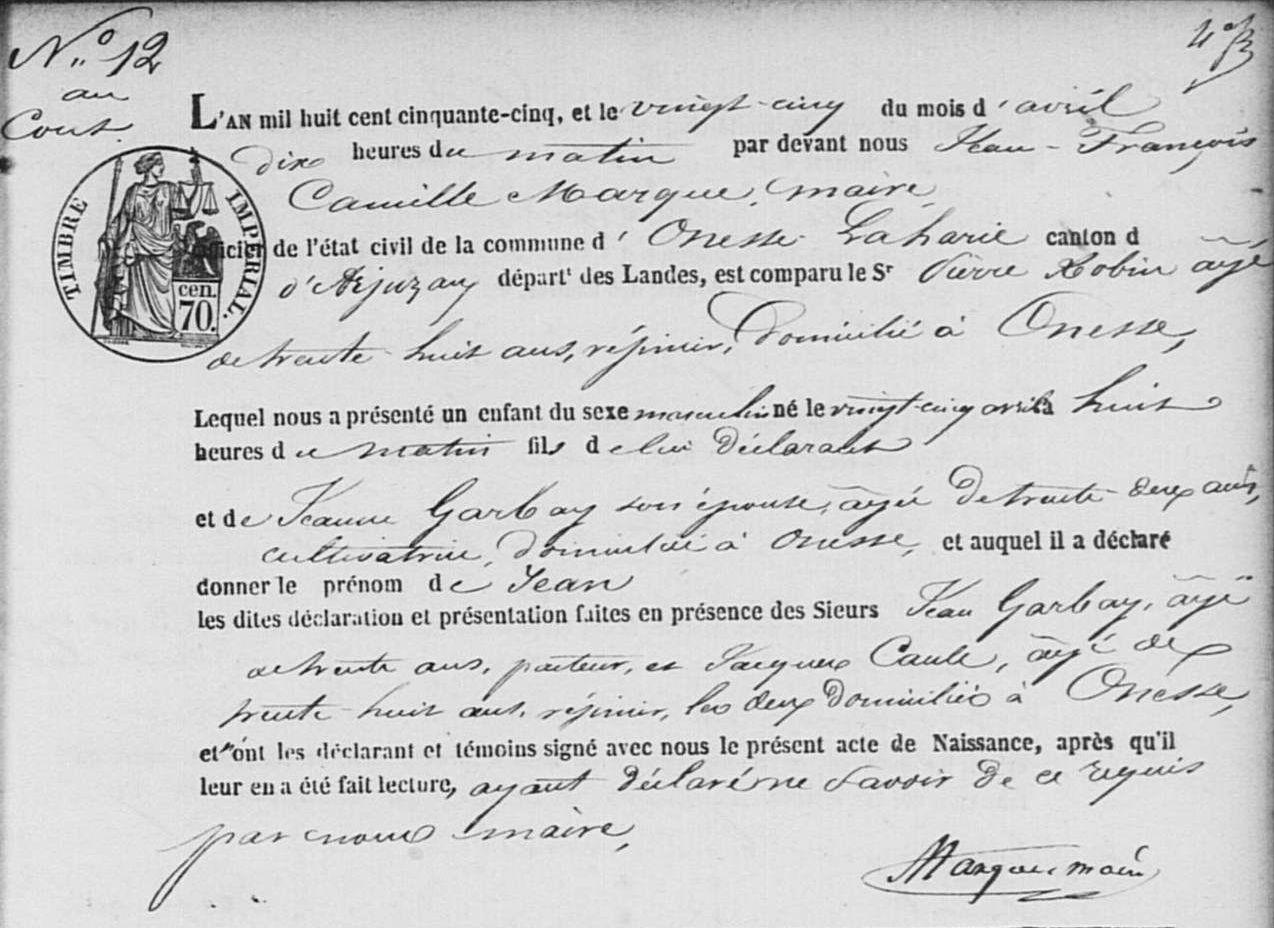 N.º 12
au
Cout.
4º
TIMBRE IMPÉRIAL.
cen.
70.
L'AN mil huit cent cinquante-cinq, et le vingt-cinq du mois d'avril
dix heures du matin par devant nous Jean-François
Camille Marque, maire,
officier de l'état civil de la commune d'Onesse-Laharie canton d
d'Arjuzanx départ.t des Landes, est comparu le Sr Pierre Robin âgé
de trente-huit ans, résinier, domicilié à Onesse,
Lequel nous a présenté un enfant du sexe masculin né le vingt-cinq avril à huit
heures du matin fils de lui déclarant
et de Jeanne Garbay son épouse, âgée de trente-deux ans,
cultivatrice, domiciliée à Onesse, et auquel il a déclaré
donner le prénom de Jean
les dites déclaration et présentation faites en présence des Sieurs Jean Garbay, âgé
de trente ans, pasteur, et Jacques Caule, âgé de
trente-huit ans, résinier, les deux domiciliés à Onesse,
et n'ont les déclarant et témoins signé avec nous le présent acte de Naissance, après qu'il
leur en a été fait lecture, ayant déclaré ne savoir de ce requis
par nous maire,
Marque maire